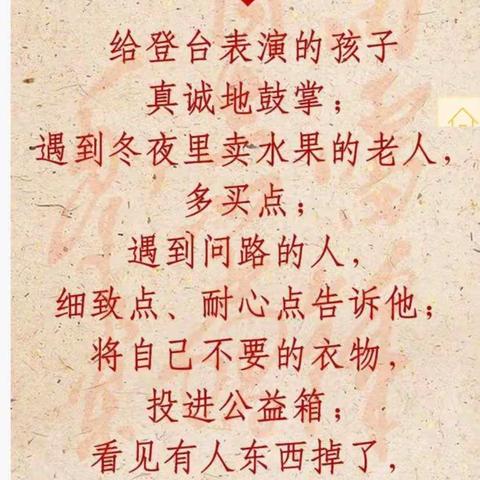 给登台表演的孩子
真诚地鼓掌；
遇到冬夜里卖水果的老人，
多买点；
遇到问路的人，
细致点、耐心点告诉他；
将自己不要的衣物，
投进公益箱；
看见有人东西掉了，